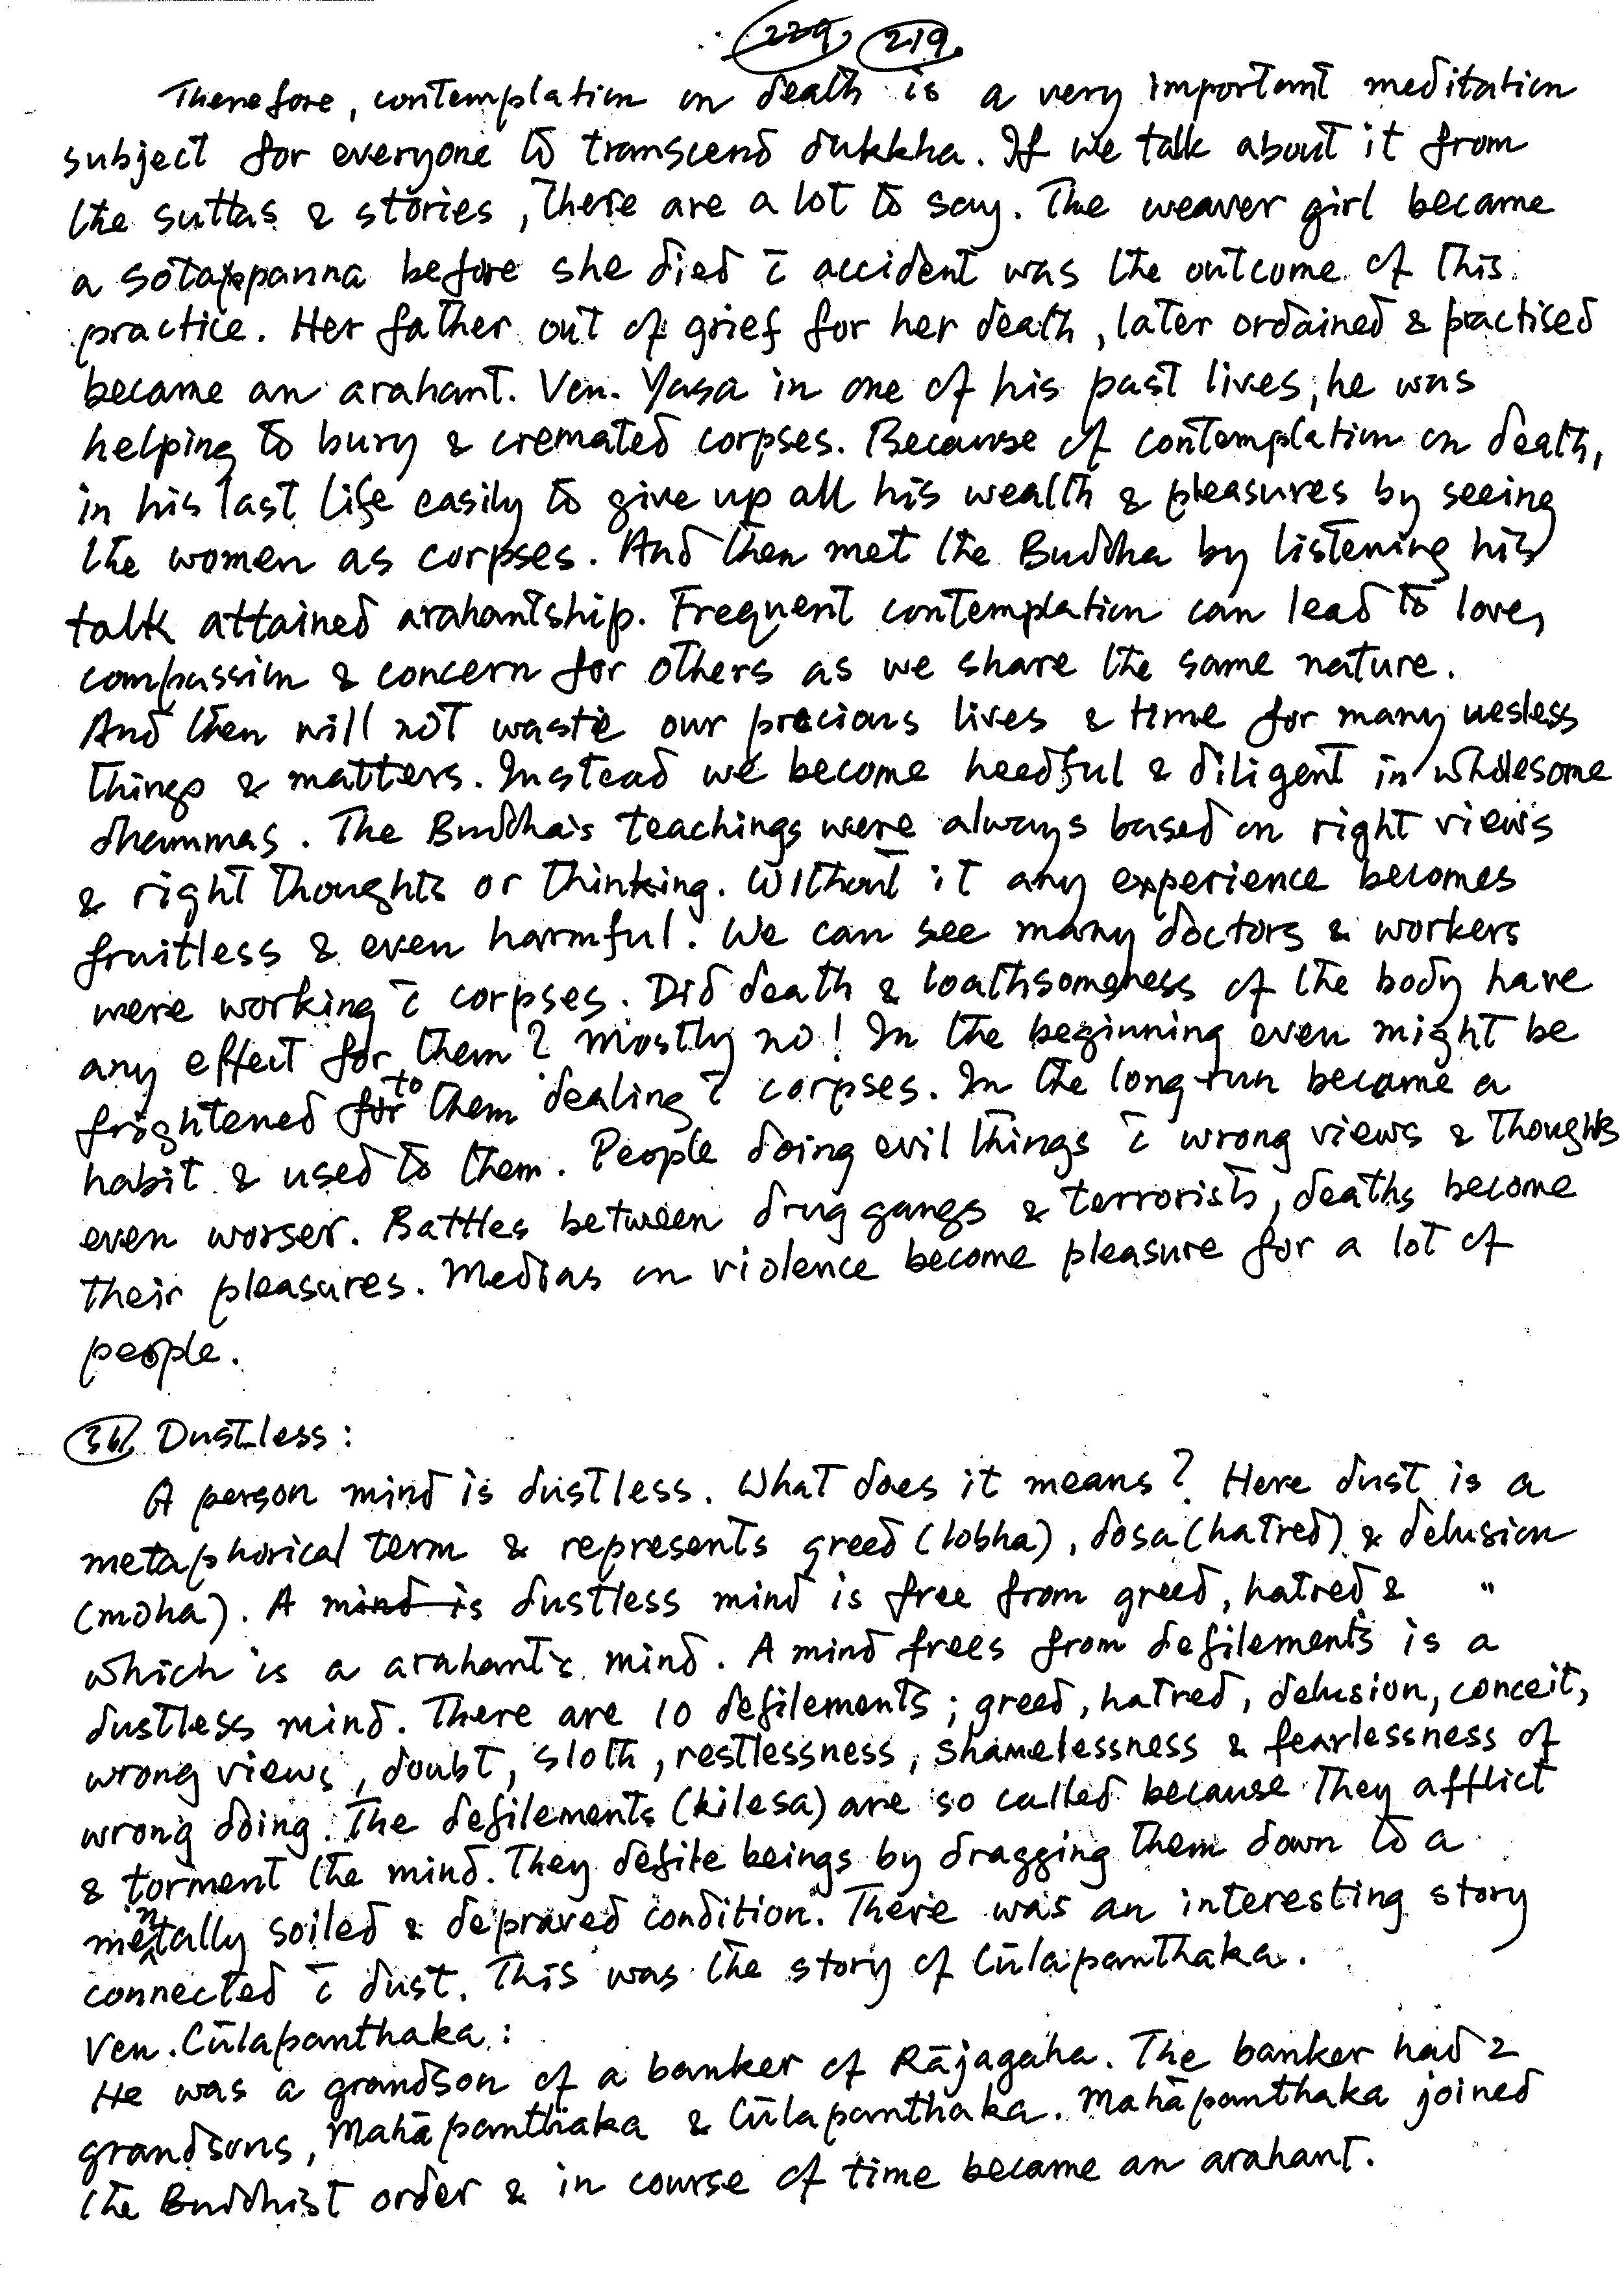 229 219.
Therefore, contemplation on death is a very important meditation
subject for everyone to transcend dukkha. If we talk about it from
the suttas & stories, there are a lot to say. The weaver girl became
a sotappanna before she died c̄ accident was the outcome of this
practice. Her father out of grief for her death, later ordained & practised
became an arahant. Ven. Yasa in one of his past lives, he was
helping to bury & cremated corpses. Because of contemplation on death,
in his last life easily to give up all his wealth & pleasures by seeing
the women as corpses. And then met the Buddha by listening his
talk attained arahantship. Frequent contemplation can lead to love,
compassion & concern for others as we share the same nature.
And then will not waste our precious lives & time for many uesless
things & matters. Instead we become heedful & diligent in wholesome
dhammas. The Buddha's teachings were always based on right views
& right thoughts or thinking. Without it any experience becomes
fruitless & even harmful. We can see many doctors & workers
were working c̄ corpses. Did death & loathsomeness of the body have
any effect for them? Mostly no! In the beginning even might be
frightened for to them dealing c̄ corpses. In the long-run became a
habit & used to them. People doing evil things c̄ wrong views & thoughts
even worser. Battles between drug gangs & terrorists, deaths become
their pleasures. Medias on violence become pleasure for a lot of
people.
36, Dustless:
A person mind is dustless. What does it means? Here dust is a
metaphorical term & represents greed (lobha), dosa (hatred) & delusion
(moha). A mind is dustless mind is free from greed, hatred & "
which is a arahant's mind. A mind frees from defilements is a
dustless mind. There are 10 defilements; greed, hatred, delusion, conceit,
wrong views, doubt, sloth, restlessness, shamelessness & fearlessness of
wrong doing. The defilements (kilesa) are so called because they afflict
& torment the mind. They defile beings by dragging them down to a
mentally soiled & depraved condition. There was an interesting story
connected c̄ dust. This was the story of Cūlapanthaka.
Ven. Cūlapanthaka:
He was a grandson of a banker of Rājagaha. The banker had 2
grandsons, Mahāpanthaka & Cūlapanthaka. Mahāpanthaka joined
the Buddhist order & in course of time became an arahant.